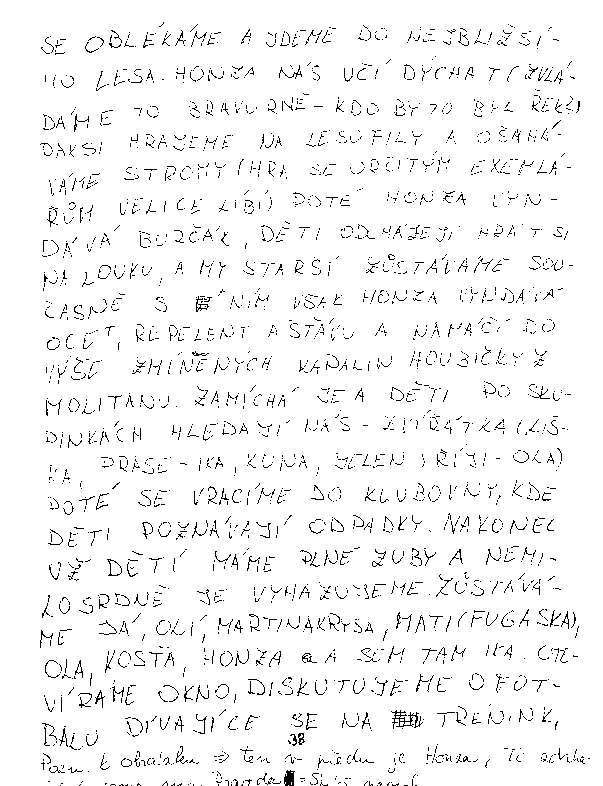 SE OBLÉKÁME A JDEME DO NEJBLIŽŠÍ-
HO LESA. HONZA NÁS UČÍ DÝCHAT (ZVLÁ-
DÁME TO BRAVURNĚ - KDO BY TO BYL ŘEKL)
DÁKSI HRAJEME NA LESOFILY A OSAHÁ-
VÁME STROMY (HRA SE URČITÝM EXEMLÁ-
ŘŮM VELICE LÍBÍ) POTÉ HONZA VYN-
DÁVÁ BURČÁK, DĚTI ODCHÁZEJÍ HRÁT SI
NA LOUKU, A MY STARŠÍ ZŮSTÁVÁME SOU-
ČASNĚ S NÍM VŠAK HONZA VYNDAVÁ
OCET, REPELENT A ŠŤÁVU A NAMÁČÍ DO
VÝŠE ZMÍNĚNÝCH KAPALIN HOUBIČKY Z
MOLITANU. ZAMÍCHÁ JE A DĚTI PO SKU-
PINKÁCH HLEDAJÍ NÁS - ZVÍŘÁTKA (LIŠ-
KA, PRASE - IKA, KUNA, JELEN V ŘÍJI - OLA)
POTÉ SE VRACÍME DO KLUBOVNY, KDE
DĚTI POZNÁVAJÍ ODPADKY. NAKONEC
UŽ DĚTÍ MÁME PLNÉ ZUBY A NEMI-
LOSRDNĚ JE VYHAZUJEME. ZŮSTÁVÁ-
ME JÁ, OLÍ, MARTINA KRYSA, MATI (FUGASKA),
OLA, KOSŤA, HONZA A SEM TAM IKA. OTE-
VÍRÁME OKNO, DISKUTUJEME O FOT-
BALU DÍVAJÍCE SE NA TRÉNINK,
38
Pozn. k obrázku => ten v předu je Honza, Ti